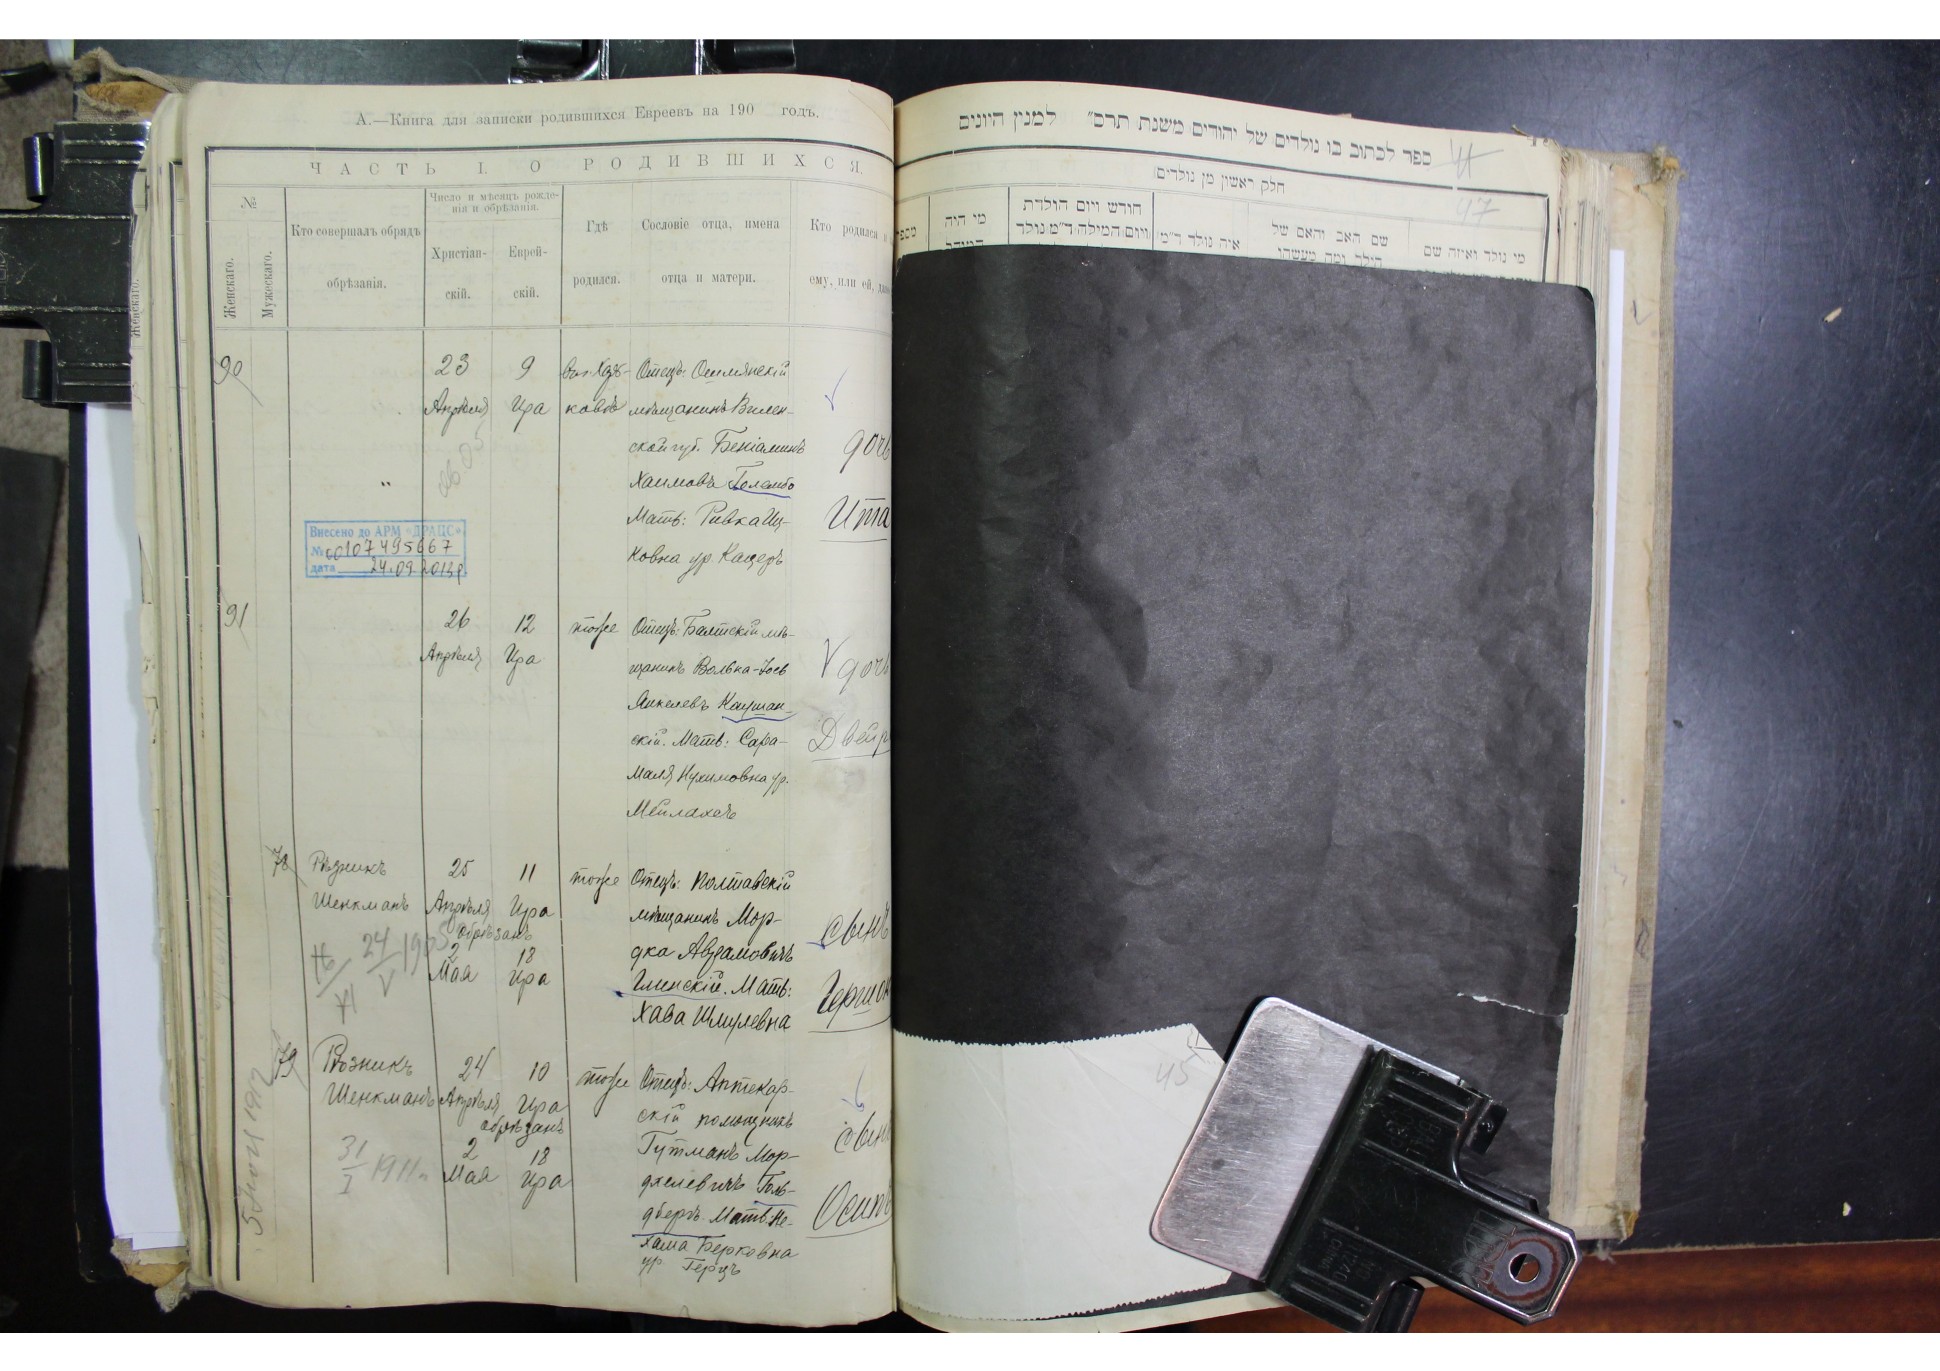 А.—Книга для записки родившихся Евреевъ на 190 годъ.
ЧАСТЬ I. О РОДИВШИХСЯ.
№
Женскаго.
Мужескаго.
Кто совершалъ обрядъ
обрѣзанія.
Число и мѣсяцъ рожде-
нія и обрѣзанія.
Христіан-
скій.
Еврей-
скій.
Гдѣ
родился.
Сословіе отца, имена
отца и матери.
Кто родился и
ему, или ей, да
90
23
Апрѣля
9
Ира
ковѣ
Отецъ: Ошмянскій
мѣщанинъ Вилен-
ской губ. Беніаминъ
Хаимовъ Голембо
Мать: Ривка Иц-
ковна ур. Кацеръ
дочь
Ита
Внесено до АРМ «ДРАЦС»
№ 00107495667
дата 24.09.2013р
91
26
Апрѣля
12
Ира
тоже
Отецъ: Балтскій мѣ-
щанинъ Волько-Іось
Янкелевъ Каушан-
скій. Мать: Сара-
Маля Нухимовна ур.
Мейлахсъ
дочь
Двейр
78
Рѣзникъ
Шенкманъ
25
Апрѣля
11
Ира
обрѣзанъ
2
Мая
18
Ира
24/V 1905
тоже
Отецъ: Полтавскій
мѣщанинъ Мор-
дка Аврамовичъ
Глинскій. Мать:
Хава Шмулевна
сынъ
Гершок
79
Рѣзникъ
Шенкманъ
24
Апрѣля
10
Ира
обрѣзанъ
2
Мая
18
Ира
31/I 1911
тоже
Отецъ: Аптекар-
скій помощникъ
Гутманъ Мор-
дхелевичъ Голь-
дберъ. Мать: Не-
хама Берковна
ур Герцъ
сынъ
Осипъ
ספר לכתוב בו נולדים של יהודים משנת תרס״ למנין היונים
41
97
חלק ראשון מן נולדים
מי נולד ואיזה שם
שם האב והאם של
הילד ומה מעשהו
איה נולד
חודש ויום הולדת
ויום המילה
מי היה
המוהל
מספר
45